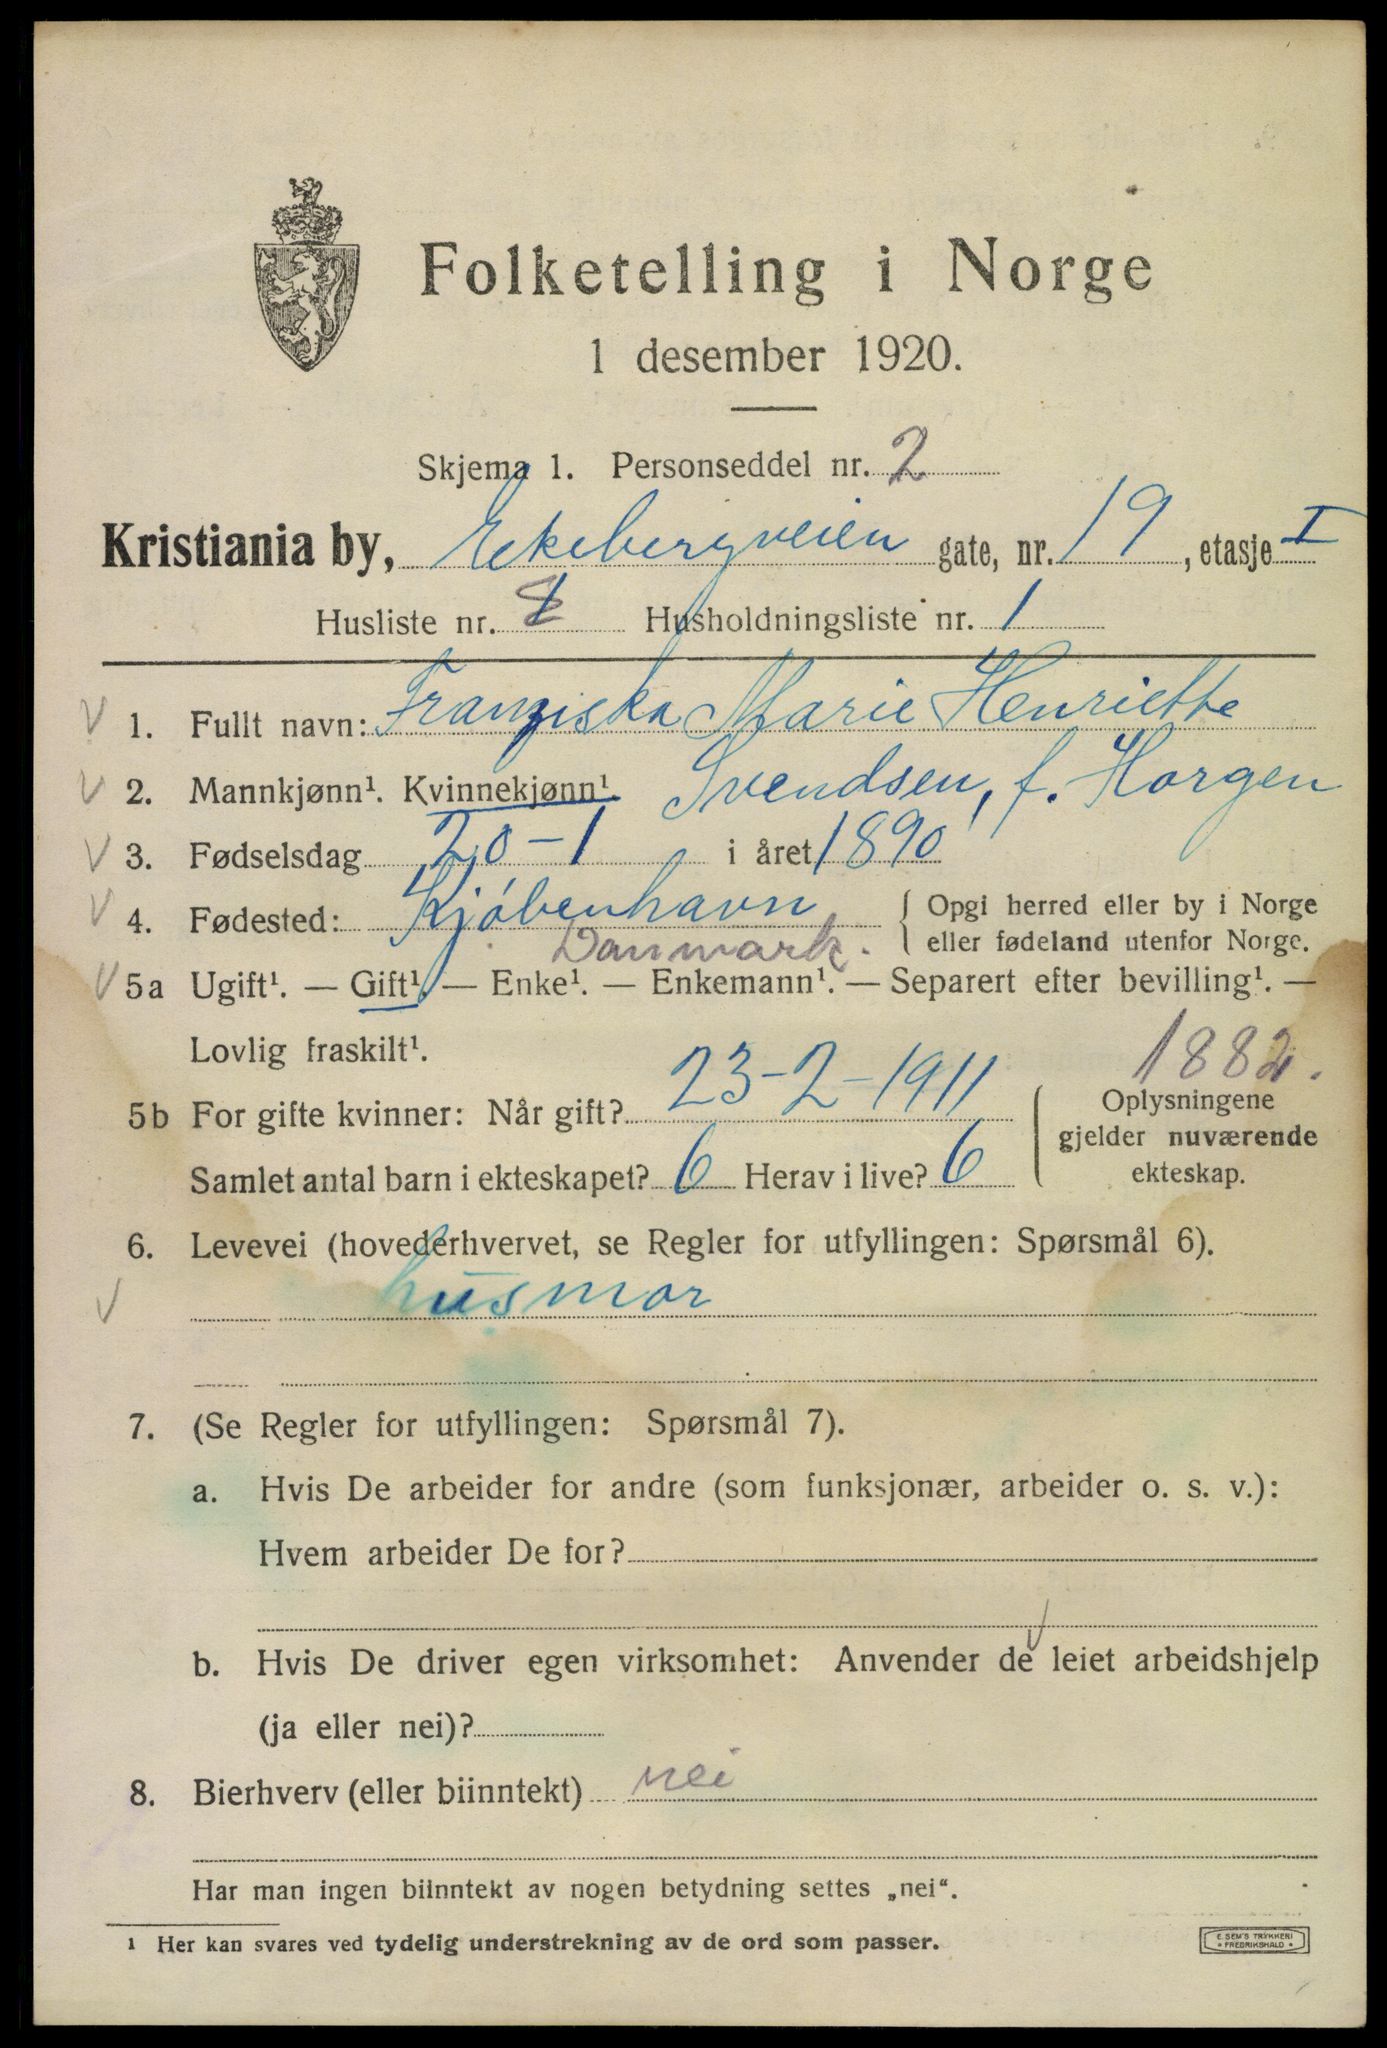 Folketelling i Norge
1 desember 1920.
Skjema 1. Personseddel nr. 2
Kristiania by, Ekebergveien gate, nr. 19, etasje I
Husliste nr. Husholdningsliste nr. 1
1. Fullt navn: Franziska Marie Henriette
2. Mannkjønn¹. Kvinnekjønn¹. Svendsen, f. Horgen
3. Fødselsdag 20-1 i året 1890
4. Fødested: Kjøbenhavn { Opgi herred eller by i Norge
Danmark. eller fødeland utenfor Norge.
5a Ugift¹. — Gift¹. — Enke¹. — Enkemann¹. — Separert efter bevilling¹. —
Lovlig fraskilt¹.
1882.
5b For gifte kvinner: Når gift? 23-2-1911 { Oplysningene
gjelder nuværende
Samlet antal barn i ekteskapet? 6 Herav i live? 6 ekteskap.
6. Levevei (hovederhvervet, se Regler for utfyllingen: Spørsmål 6).
husmor
7. (Se Regler for utfyllingen: Spørsmål 7).
a. Hvis De arbeider for andre (som funksjonær, arbeider o. s. v.):
Hvem arbeider De for?
b. Hvis De driver egen virksomhet: Anvender de leiet arbeidshjelp
(ja eller nei)?
8. Bierhverv (eller biinntekt) nei
Har man ingen biinntekt av nogen betydning settes „nei“.
¹ Her kan svares ved tydelig understrekning av de ord som passer.
E. SEM'S TRYKKERI
* FREDRIKSHALD *